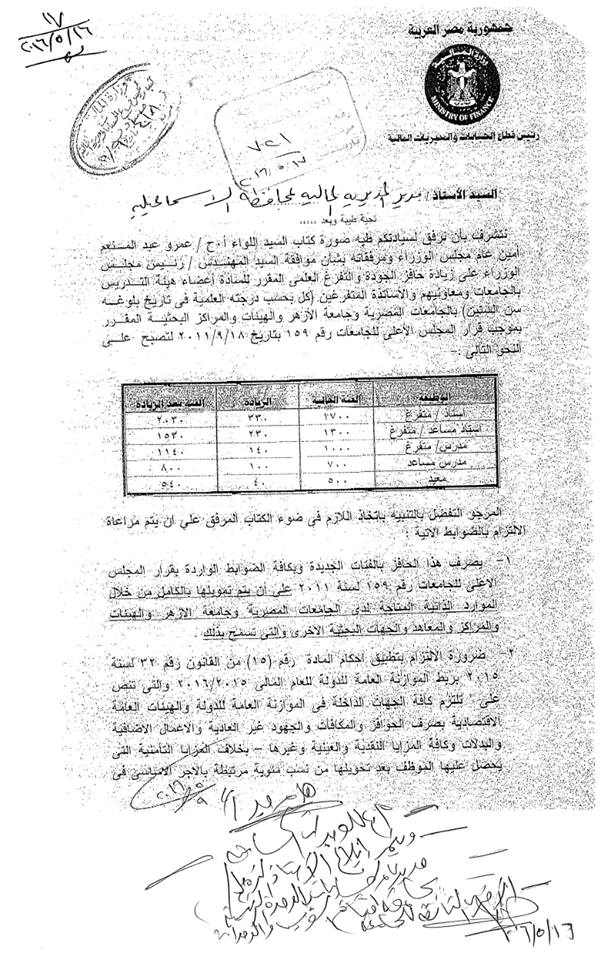 ١٧
٢٠١٦/٥/١٦
جمهورية مصر العربية
وزارة المالية
MINISTRY OF FINANCE
رئيس قطاع الحسابات والمديريات المالية
٧٤١
السيد الأستاذ / مدير المديريه الماليه لمحافظة الاسماعيليه
تحية طيبة وبعد .....
نتشرف بأن نرفق لسيادتكم طيه صورة كتاب السيد اللواء أ.ح / عمرو عبد المنعم
أمين عام مجلس الوزراء ومرفقاته بشأن موافقة السيد المهندس / رئيس مجلس
الوزراء علي زيادة حافز الجودة والتفرغ العلمي المقرر للسادة أعضاء هيئة التدريس
بالجامعات ومعاونيهم والأساتذة المتفرغين (كل بحسب درجته العلمية في تاريخ بلوغه
سن الستين) بالجامعات المصرية وجامعة الأزهر والهيئات والمراكز البحثية المقرر
بموجب قرار المجلس الأعلى للجامعات رقم ١٥٩ بتاريخ ٢٠١١/٩/١٨ لتصبح علي
النحو التالي :-
الوظيفة الفئة الحالية الزيادة الفئة بعد الزيادة
استاذ / متفرغ ١٧٠٠ ٣٣٠ ٢٠٣٠
استاذ مساعد / متفرغ ١٣٠٠ ٢٣٠ ١٥٣٠
مدرس/ متفرغ ١٠٠٠ ١٤٠ ١١٤٠
مدرس مساعد ٧٠٠ ١٠٠ ٨٠٠
معيد ٥٠٠ ٤٠ ٥٤٠
المرجو التفضل بالتنبيه باتخاذ اللازم في ضوء الكتاب المرفق علي ان يتم مراعاة
الالتزام بالضوابط الاتية :
١- يصرف هذا الحافز بالفئات الجديدة وبكافة الضوابط الواردة بقرار المجلس
الاعلى للجامعات رقم ١٥٩ لسنة ٢٠١١ على ان يتم تمويلها بالكامل من خلال
الموارد الذاتية المتاحة لدى الجامعات المصرية وجامعة الازهر والهيئات
والمراكز والمعاهد والجهات البحثية الاخرى والتي تسمح بذلك .
٢- ضرورة الالتزام بتطبيق احكام المادة رقم (١٥) من القانون رقم ٣٢ لسنة
٢٠١٥ بربط الموازنة العامة للدولة للعام المالى ٢٠١٦/٢٠١٥ والتى تنص
على " تلتزم كافة الجهات الداخلة في الموازنة العامة للدولة والهيئات العامة
الاقتصادية بصرف الحوافز والمكافآت والجهود غير العادية والاعمال الاضافية
والبدلات وكافة المزايا النقدية والعينية وغيرها – بخلاف المزايا التأمينية التى
يحصل عليها الموظف بعد تحويلها من نسب مئوية مرتبطة بالأجر الاساسى فى